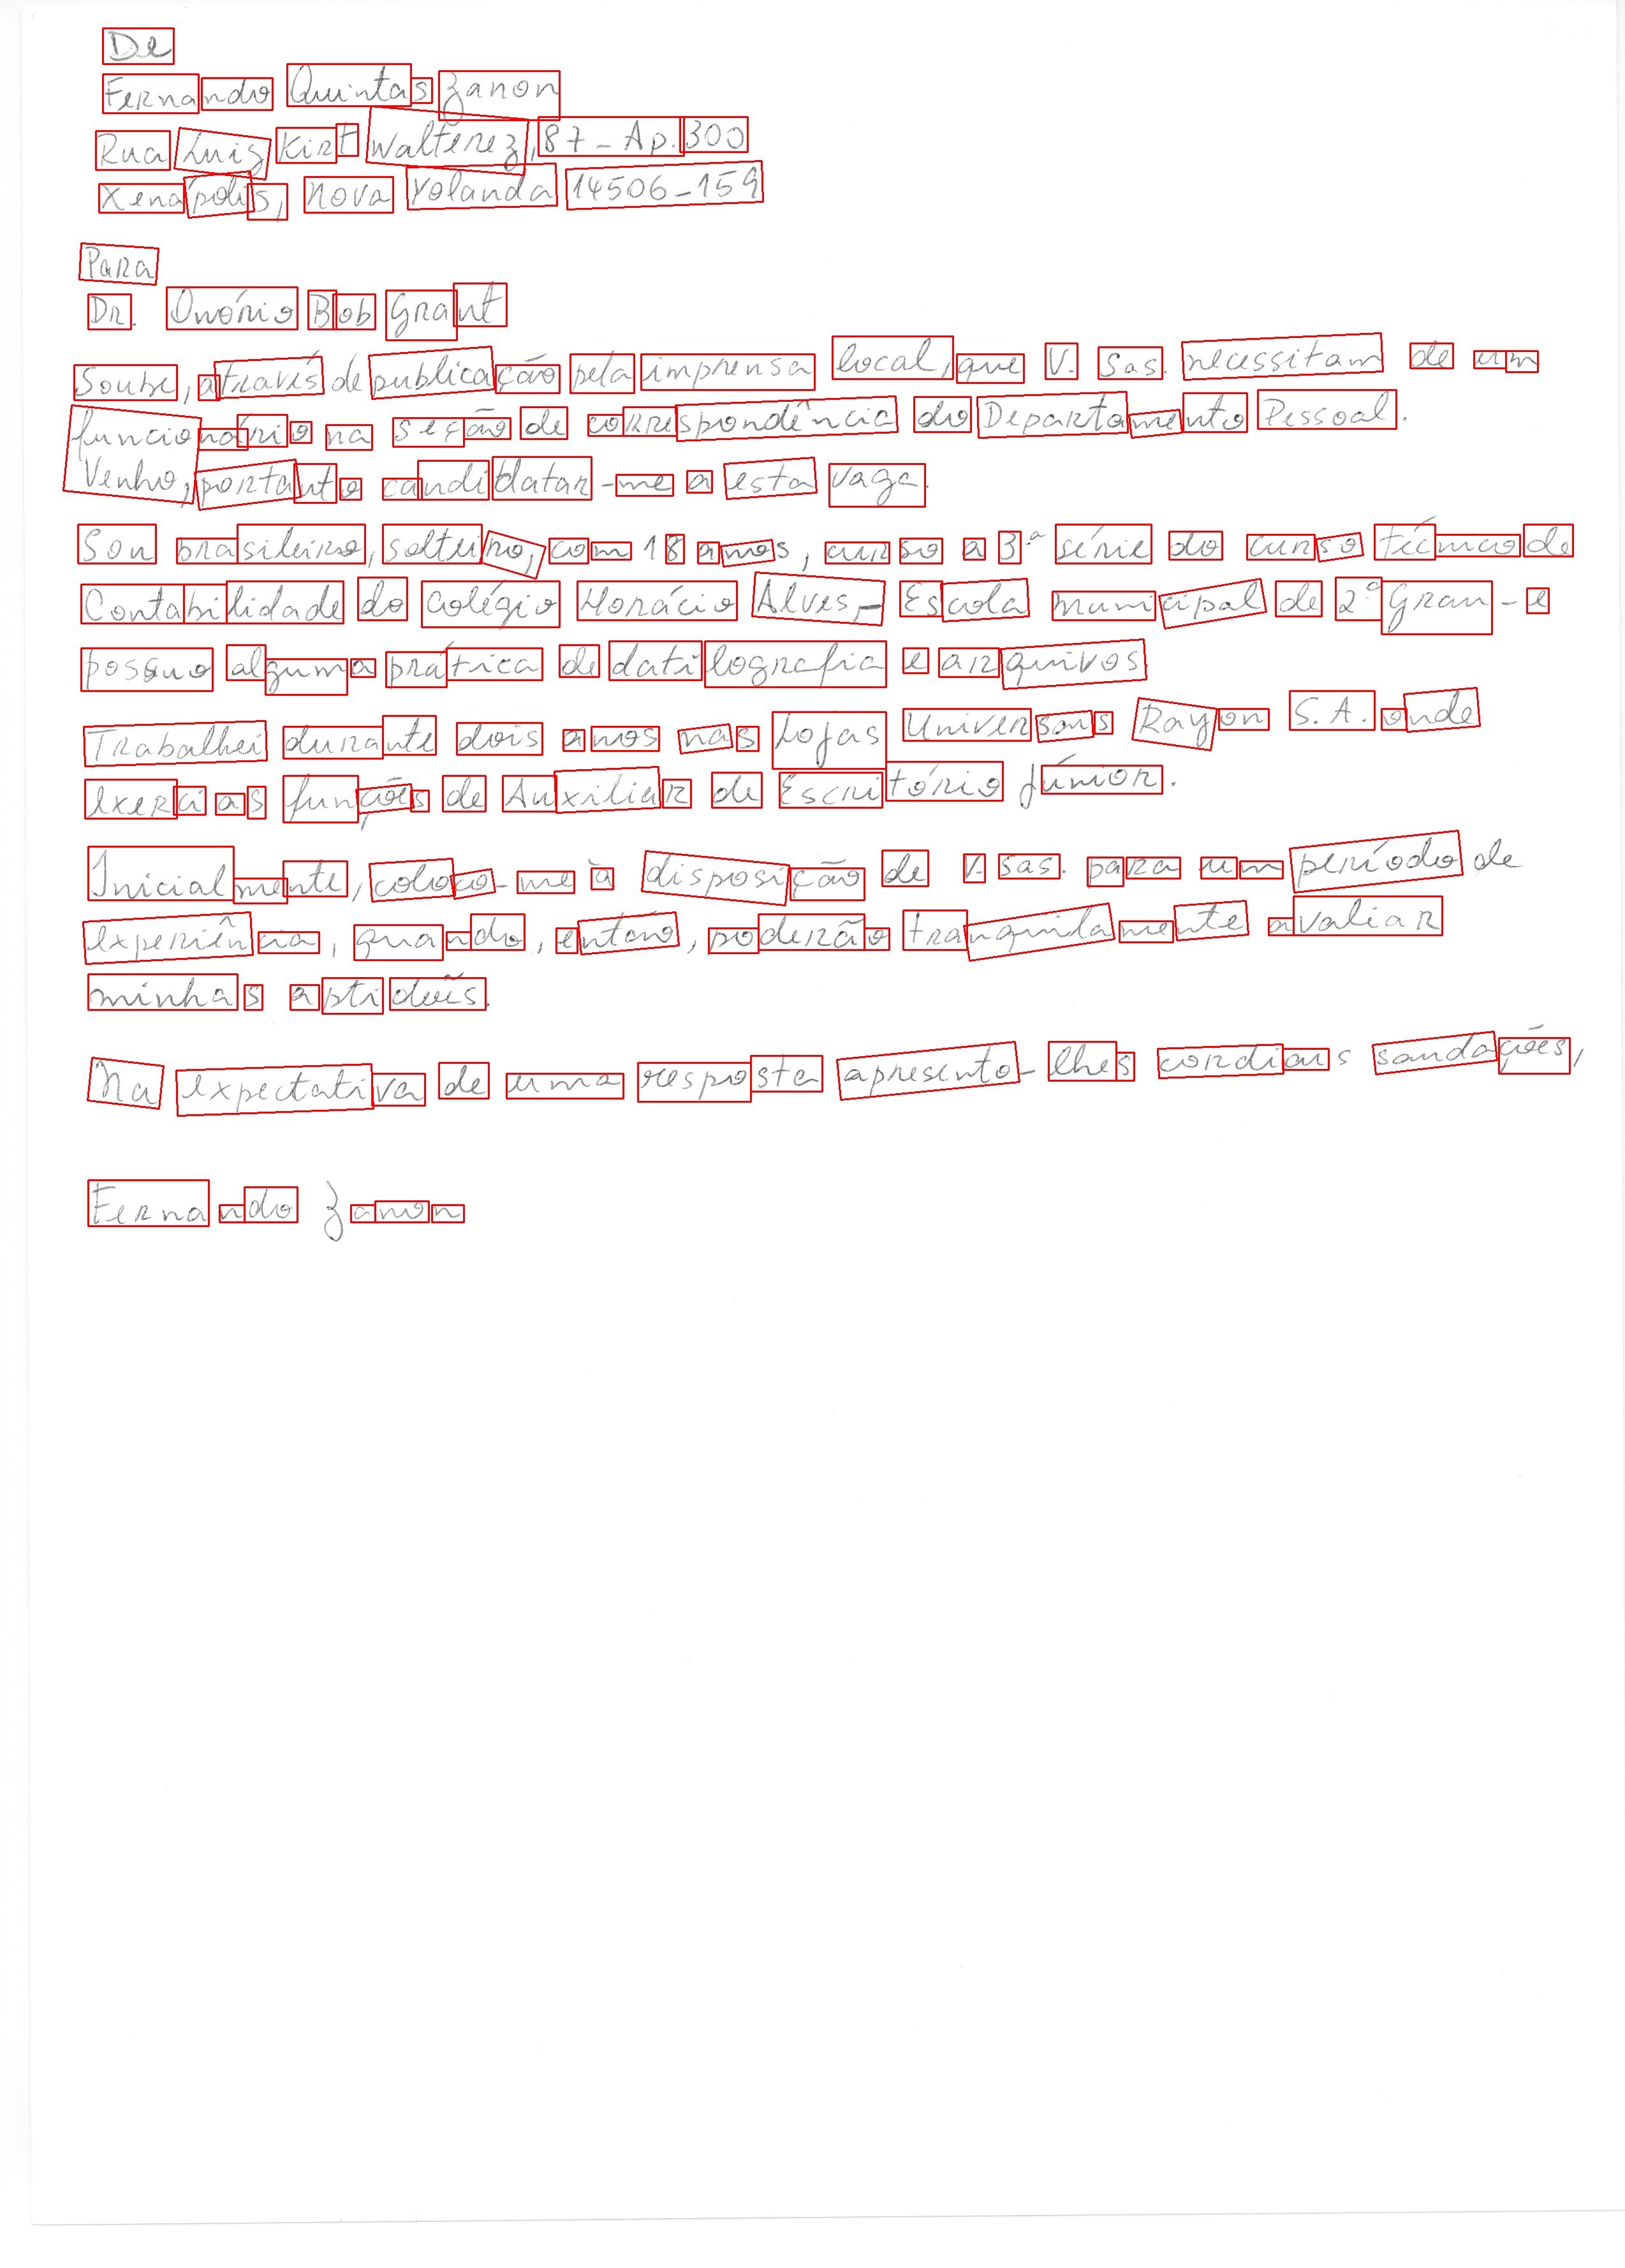 De
Fernando Quintas Zanon
Rua Luiz Kirt Walterez, 87 - Ap. 300
Xenápolis, Nova Yolanda 14506-159
Para
Dr. Onório Bob Grant
Soube, através de publicação pela imprensa local, que V. Sas. necessitam de um
funcionário na seção de correspondência do Departamento Pessoal.
Venho, portanto candidatar-me a esta vaga.
Sou brasileiro, solteiro, com 18 anos, curso a 3ª série do curso técnico de
Contabilidade do Colégio Horácio Alves, - Escola Municipal de 2º Grau - e
possuo alguma prática de datilografia e arquivos.
Trabalhei durante dois anos nas Lojas Universais Rayon S.A. onde
exerci as funções de Auxiliar de Escritório Júnior.
Inicialmente, coloco-me à disposição de V. Sas. para um período de
experiência, quando, então, poderão tranquilamente avaliar
minhas aptidões.
Na expectativa de uma resposta apresento-lhes cordiais saudações,
Fernando Zanon